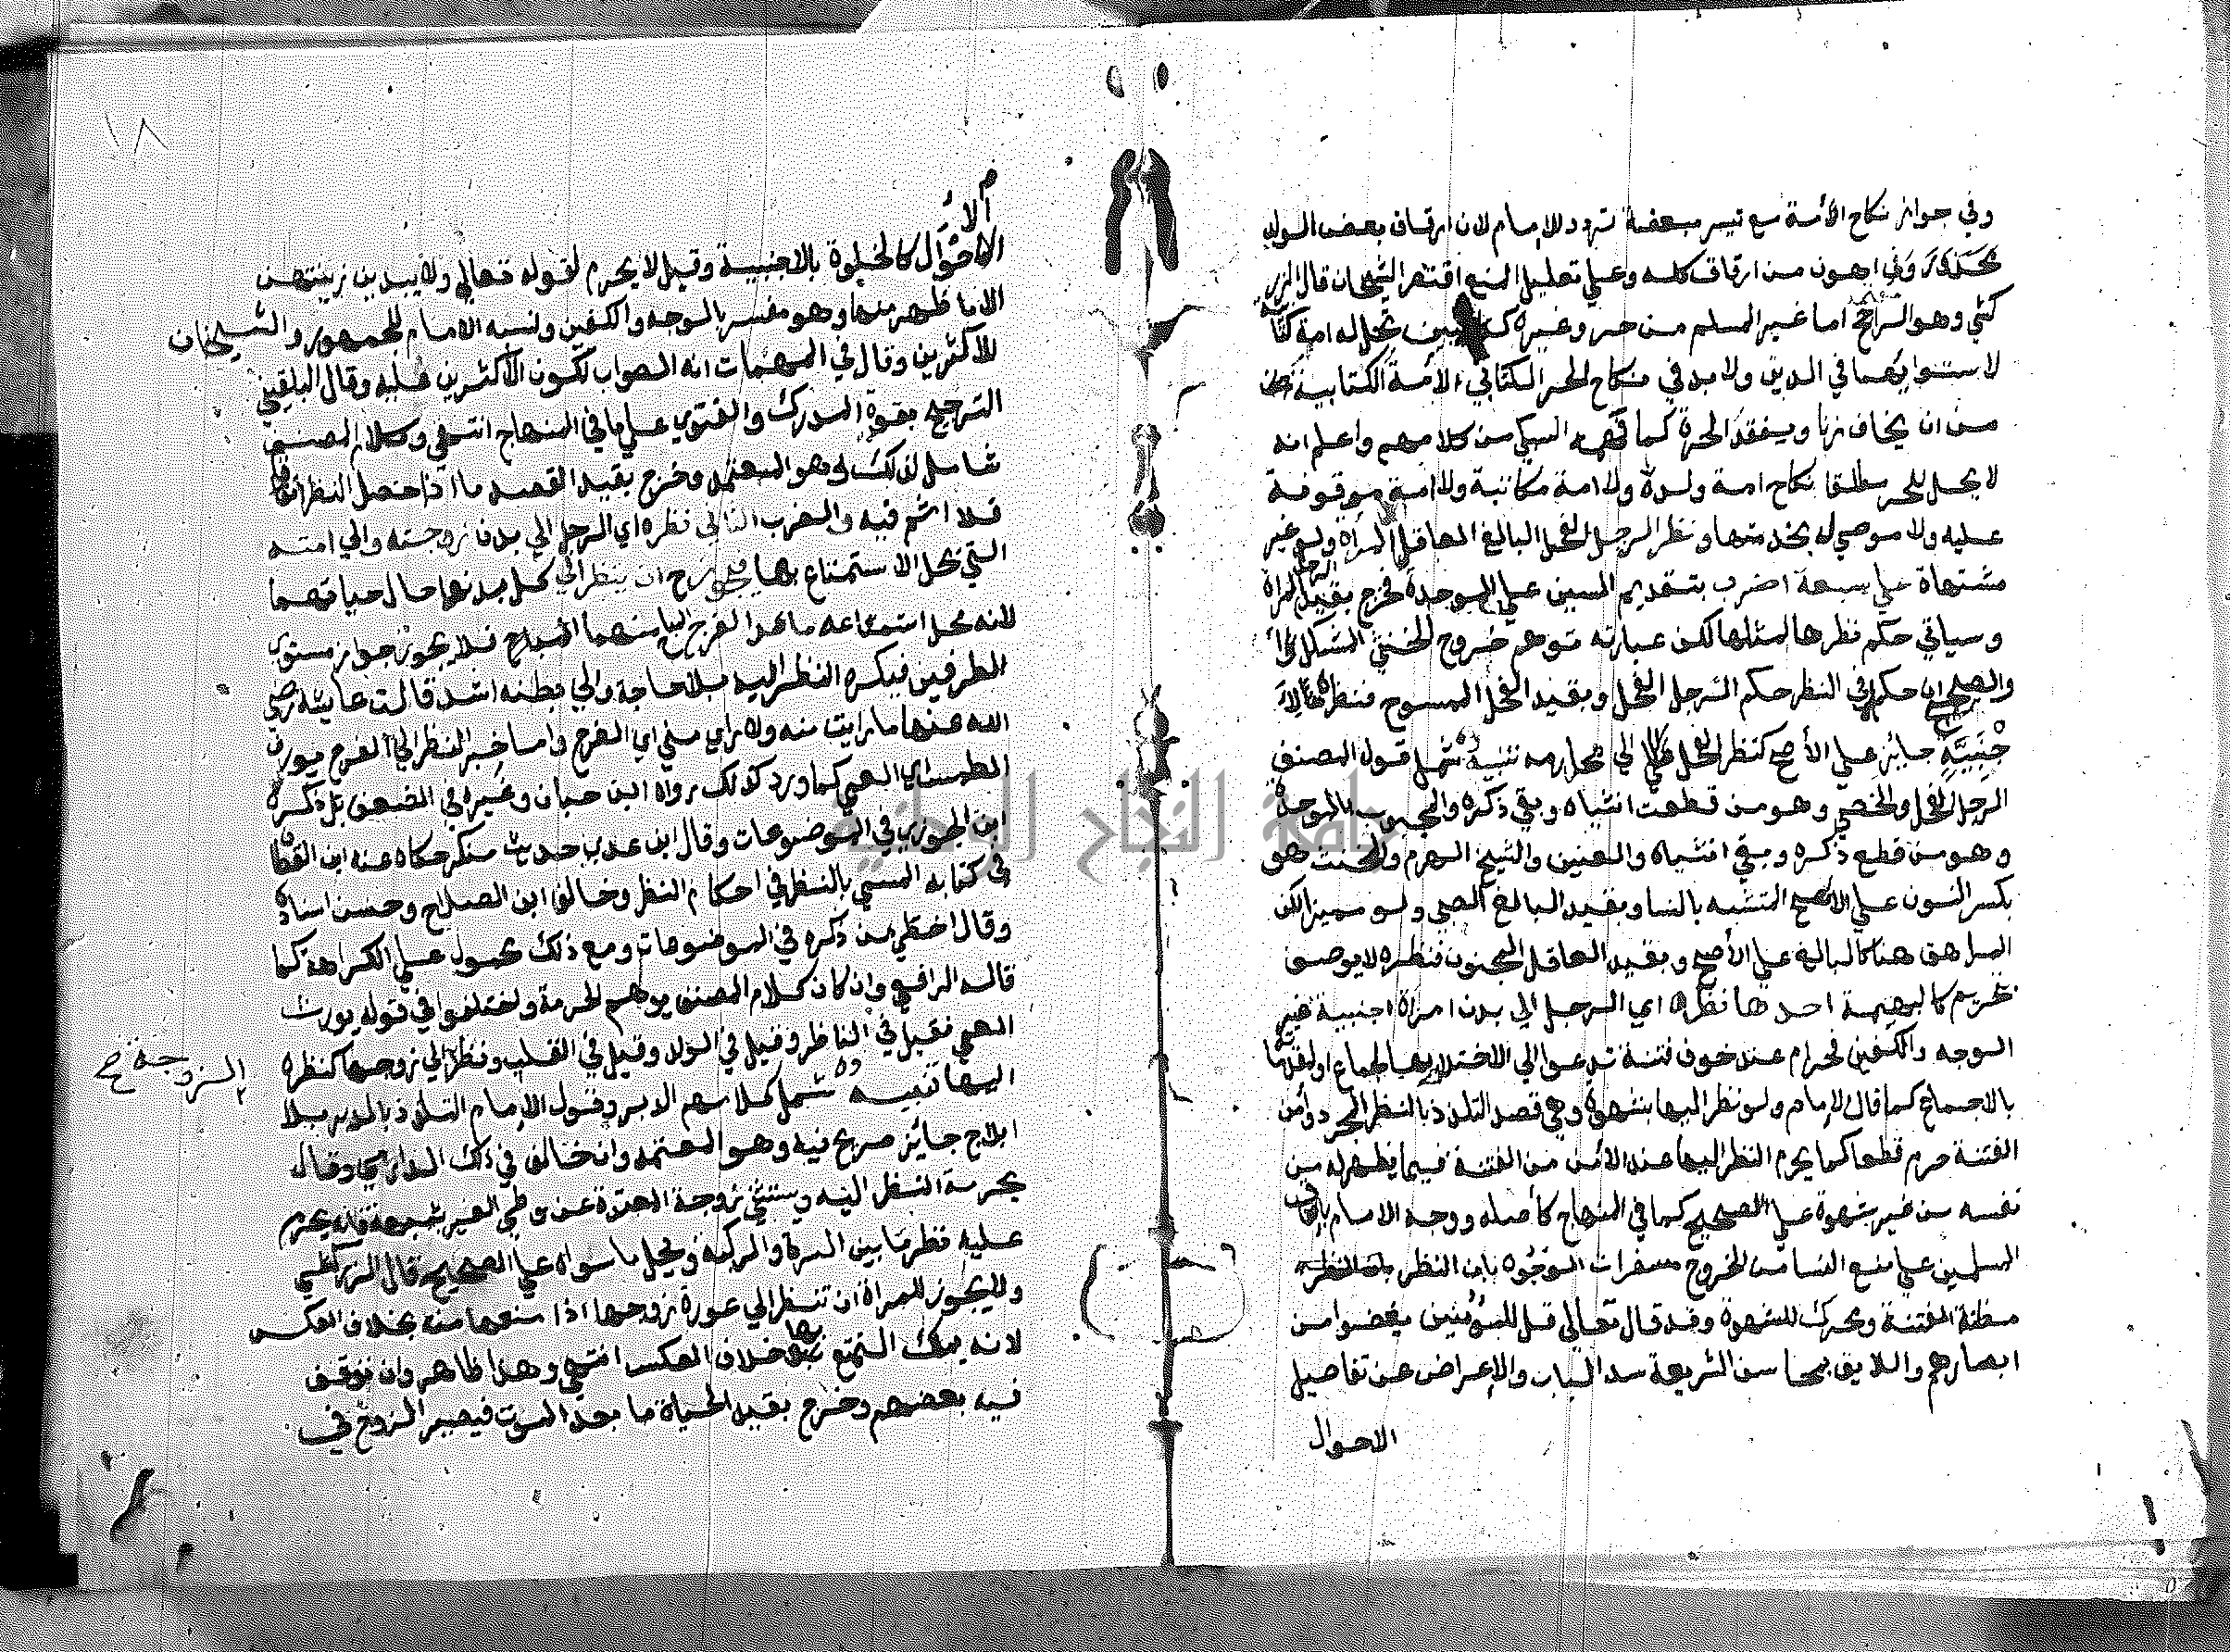 وفي جواز نكاح الأمة مع تيسر مبعضة تردد للإمام لان ارقاق بعض الولد
يحذر وفي اهون من ارقاق كله وعلي تعليل المنع اقتصر الشيخان قال الزر
كشي وهو الراجح اما غير المسلم من حر وغيره تحل له امة كتابية
لاستوايهما في الدين ولا بد في نكاح الحر الكتابي الأمة الكتابية
من ان يخاف زنا ويفقد الحرة كما فهمه السبكي من كلامهم واعلم انه
لا يحل للحر مطلقا نكاح امة ولده ولا امة مكاتبة ولا امة موقوفة
عليه ولا موصي له بخدمتها ونظر الرجل الفحل البالغ العاقل المرأة ولو غير
مشتهاة علي سبعة اضرب بتقديم السين علي الموحدة فخرج بقيد الرجل المرأة
وسياتي حكم نظرها لمثلها لكن عبارته توهم خروج الخنثي المشكل
والصحيح ان حكمه في النظر حكم الرجل الفحل وبقيد الفحل الممسوح فنظره للأ
جنبية جايز علي الأصح كنظر الفحل الي محارمه تنبيه شمل قول المصنف
الرجل الفحل والخصي وهو من قطعت انثياه وبقي ذكره والمجبوب بالموحدة
وهو من قطع ذكره وبقي انثياه والعنين والشيخ الهرم والمخنث هو
بكسر النون علي الافصح المتشبه بالنسا وبقيد البالغ الصبي ولو مميزا لكن
المراهق هنا كالبالغ علي الأصح وبقيد العاقل المجنون فنظره لا يوصف
بتحريم كالبهيمة احدها نظره اي الرجل الي بدن امراة اجنبية غير
الوجه والكفين فحرام عند خوف فتنة تدعو الي الاختلا بها لجماع او لمقدماته
بالاجماع كما قال الإمام ولو نظر اليها بشهوة وهي قصد التلذذ بالنظر المجرد وأمن
الفتنة حرم قطعا كما يحرم النظر اليها عند الأمن من الفتنة فيما يظهر له من
نفسه من غير شهوة علي الصحيح كما في المنهاج كأصله ووجه الامام باتفاق
المسلمين علي منع النسا من الخروج مسفرات الوجوه بان النظر
مظنة الفتنة ومحرك للشهوة وقد قال تعالي قل للمؤمنين يغضوا من
ابصارهم واللايق بمحاسن الشريعة سد الباب والإعراض عن تفاصيل
الاحوال
١٨
الاحوال كالخلوة بالاجنبية وقيل لا يحرم لقوله تعالي ولا يبدين زينتهن
الا ما ظهر منها وهو مفسر بالوجه والكفين ونسبه الامام للجمهور والشيخان
للاكثرين وقال في المهمات انه الصواب لكون الأكثرين عليه وقال البلقيني
الترجيح بقوة المدرك والفتوي علي ما في المنهاج انتهي وكلام المصنف
شامل لذلك وهو المعتمد وخرج بقيد القصد ما اذا حصل النظر اتفاقا
فلا اثم فيه والضرب الثاني نظره اي الرجل الي بدن زوجته والي امته
التي يحل الاستمتاع بها فيجوز ان ينظر الي كل بدنهما حال حياتهما
لانه محل استمتاعه ما عدا الفرج المباح منهما فلا يجوز جواز مستوي
الطرفين فيكره النظر اليه بلا حاجة والي باطنه اشد قالت عايشة رضي
الله عنها ما رايت منه ولا راي مني اي الفرج واما خبر النظر الي الفرج يورث
الطمس اي العمي كما ورد كذلك رواه ابن حبان وغيره في الضعفا بل ذكره
ابن الجوزي في الموضوعات وقال ابن عدي حديث منكر حكاه عنه ابن القطان
في كتابه المسمي بالنظر في احكام النظر وخالف ابن الصلاح وحسن اسناده
وقال اخطا من ذكره في الموضوعات ومع ذلك محمول علي الكراهة كما
قاله الرافعي وان كان كلام المصنف يوهم الحرمة واختلفوا في قوله يورث
العمي فقيل في الناظر وقيل في الولد وقيل في القلب ونظر الي زوجها كنظره
الزوجة صح
اليها تنبيه شمل كلامهم الدبر وقول الإمام التلذذ بالدبر بلا
ايلاج جايز صريح فيه وهو المعتمد وان خالف في ذلك الدارمي وقال
بحرمة النظر اليه ويستثني زوجة المعتدة عن وطي الغير بشبهة فانه يحرم
عليه نظر ما بين السرة والركبة ويحل ما سواه علي الصحيح قال الزركشي
ولا يجوز للمراة ان تنظر الي عورة زوجها اذا منعها منه بخلاف العكس
لانه يملك التمتع بها خلاف العكس انتهي وهذا ظاهر وان توقف
فيه بعضهم وخرج بقيد الحياة ما بعد الموت فيصير الزوج في